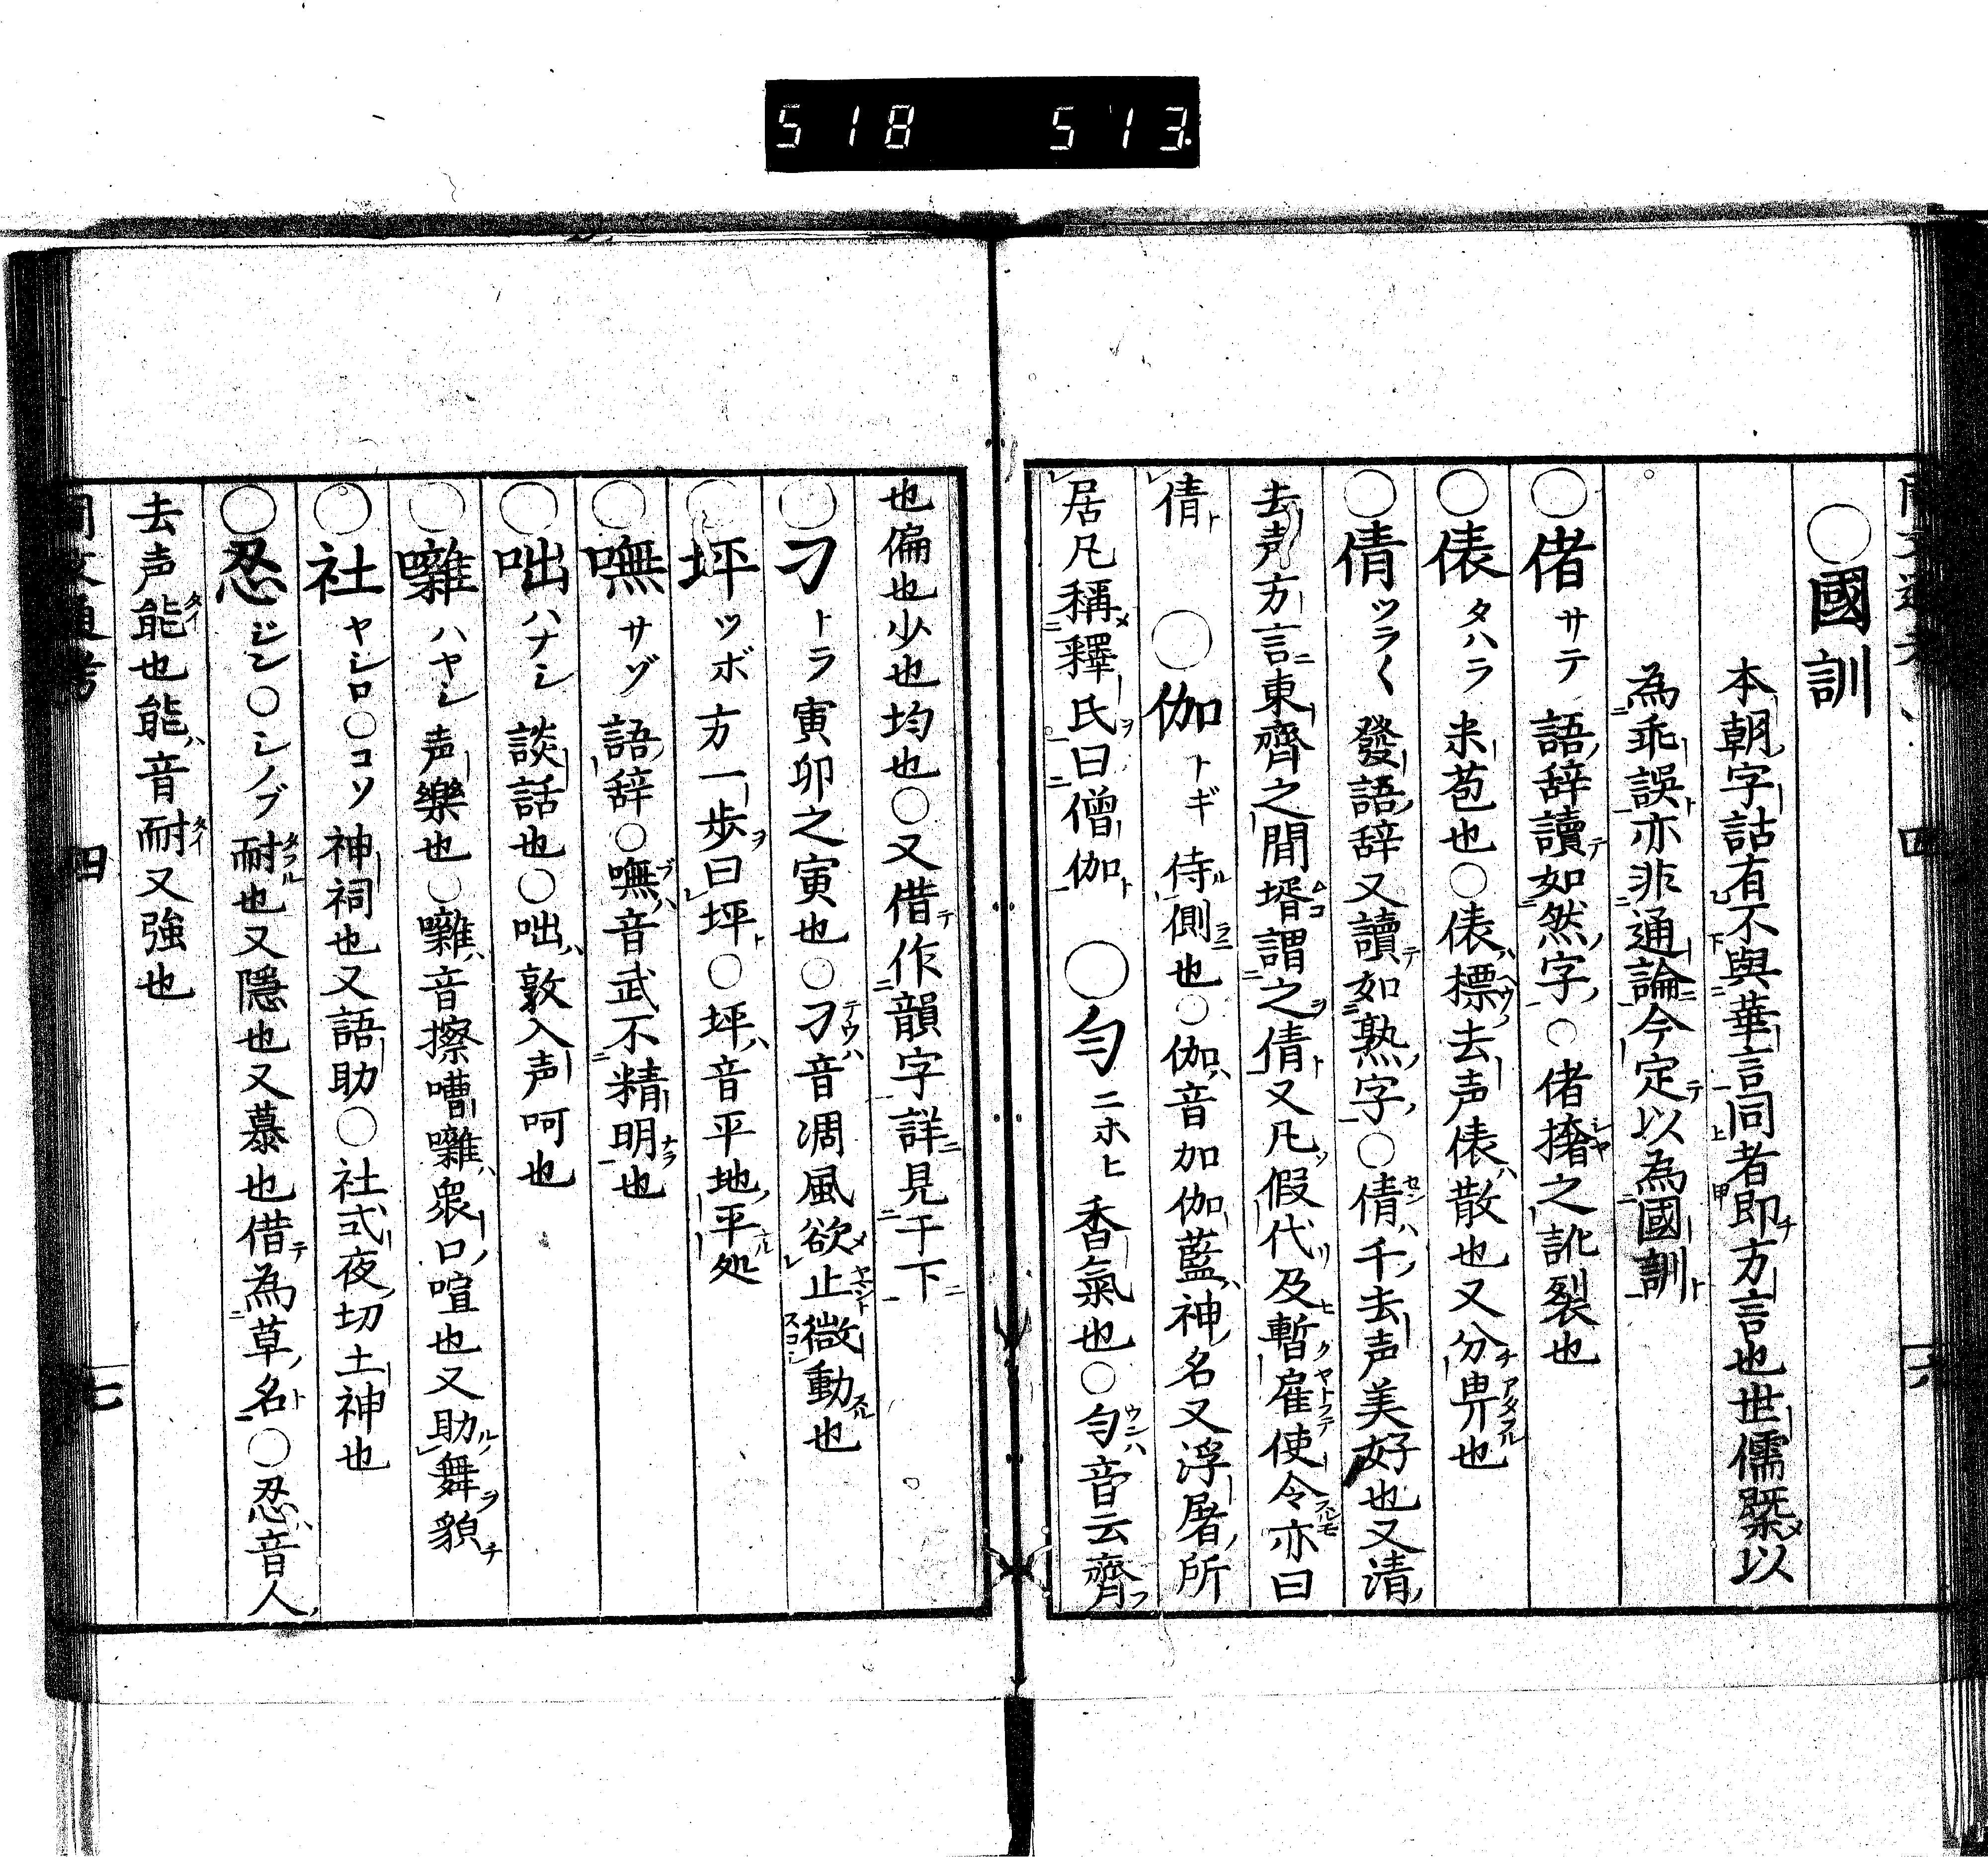 518 513
○國訓
本朝字詁有不與華言同者即方言也世儒槩以
為乖誤亦非通論今定以為國訓
○偖サテ 語辞讀如然字○偖撦之訛裂也
○俵タハラ 米苞也○俵標去声俵散也又分畀也
○倩ツラ〱 發語辞又讀如熟字○倩千去声美好也又清
去声方言東齊之間壻謂之倩又凡假代及暫雇使令亦曰
倩 ○伽トギ 侍側也○伽音加伽藍神名又浮屠所
居凡稱釋氏曰僧伽 ○匀ニホヒ 香氣也○匀音云齊
也偏也少也均也○又借作韻字詳見于下
○刁トラ 寅卯之寅也○刁音凋風欲止微動也
○坪ツボ 方一歩曰坪○坪音平地平処
○嘸サゾ 語辞○嘸音武不精明也
○咄ハナシ 談話也○咄敦入声呵也
○囃ハヤシ 声樂也○囃音擦嘈囃衆口喧也又助舞貌
○社ヤシロ○コソ 神祠也又語助○社式夜切土神也
○忍ジン○シノブ 耐也又隱也又慕也借為草名○忍音人
去声能也能音耐又強也
四
七